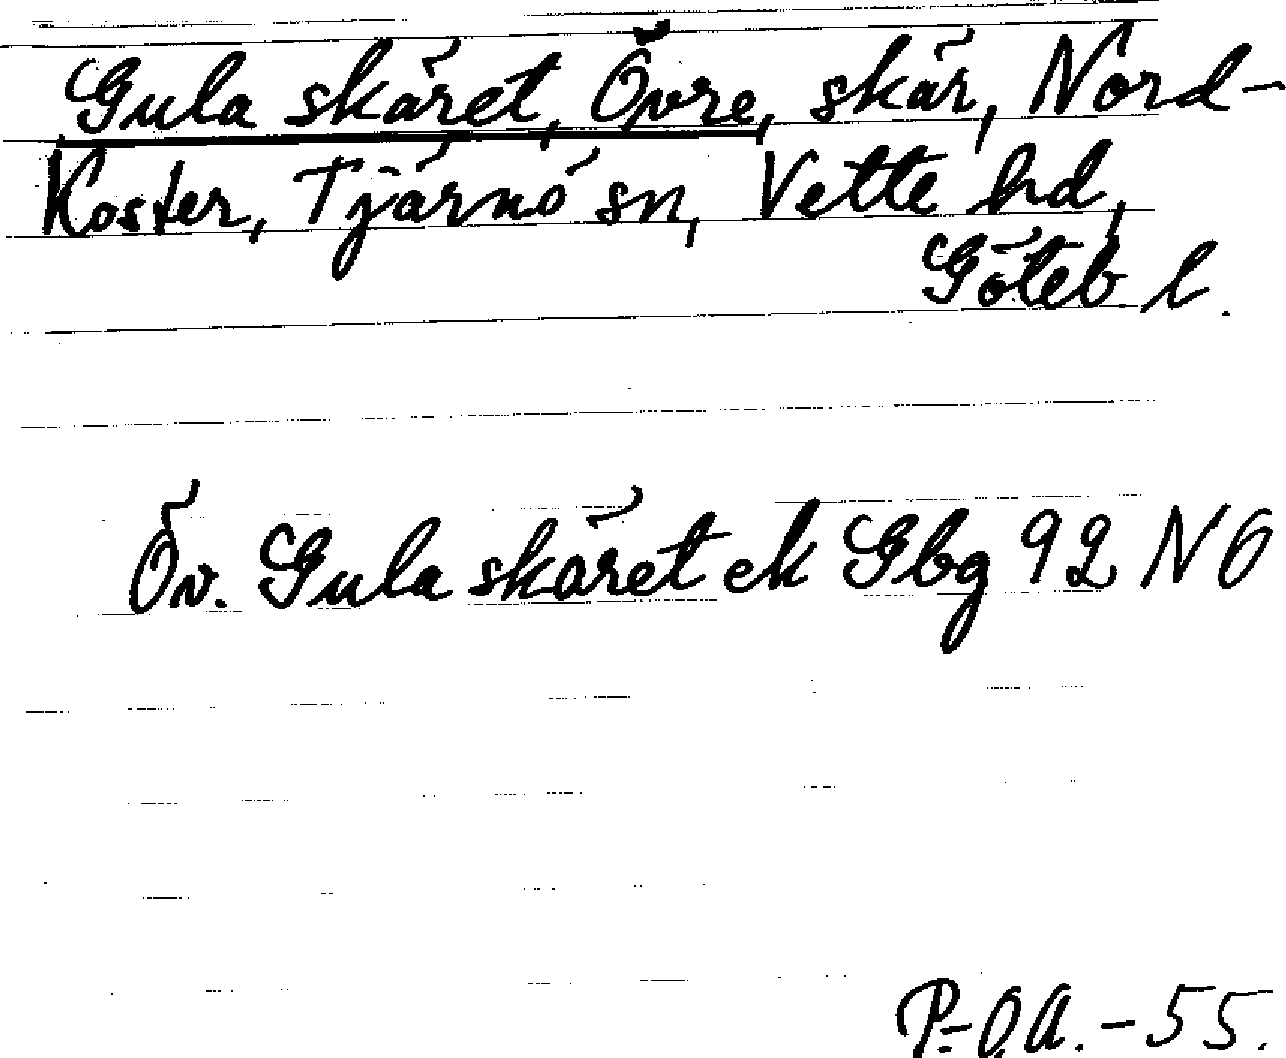 Gula skäret, Övre, skär, Nord-
Koster, Tjärnö sn, Vette hd,
Göteb l.
Öv. Gula skäret ek Gbg 92 NO
P-O.A.-55.